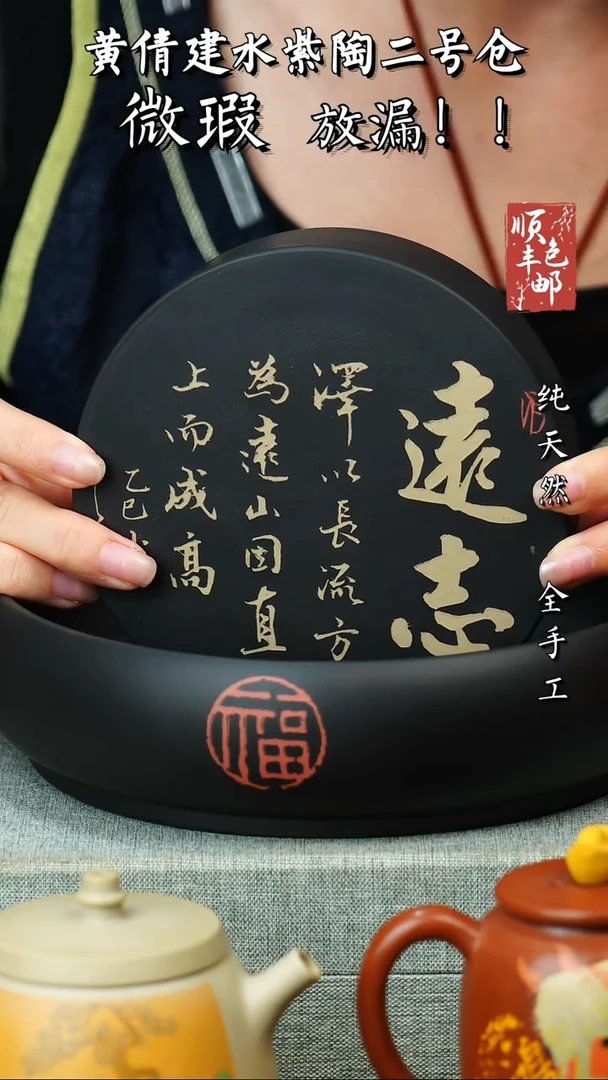 黄倩建水紫陶二号仓
微瑕 放漏！！
顺丰
包邮
纯天然 全手工
遠志
澤以長流方
為遠山因直
上而成高
乙巳
福